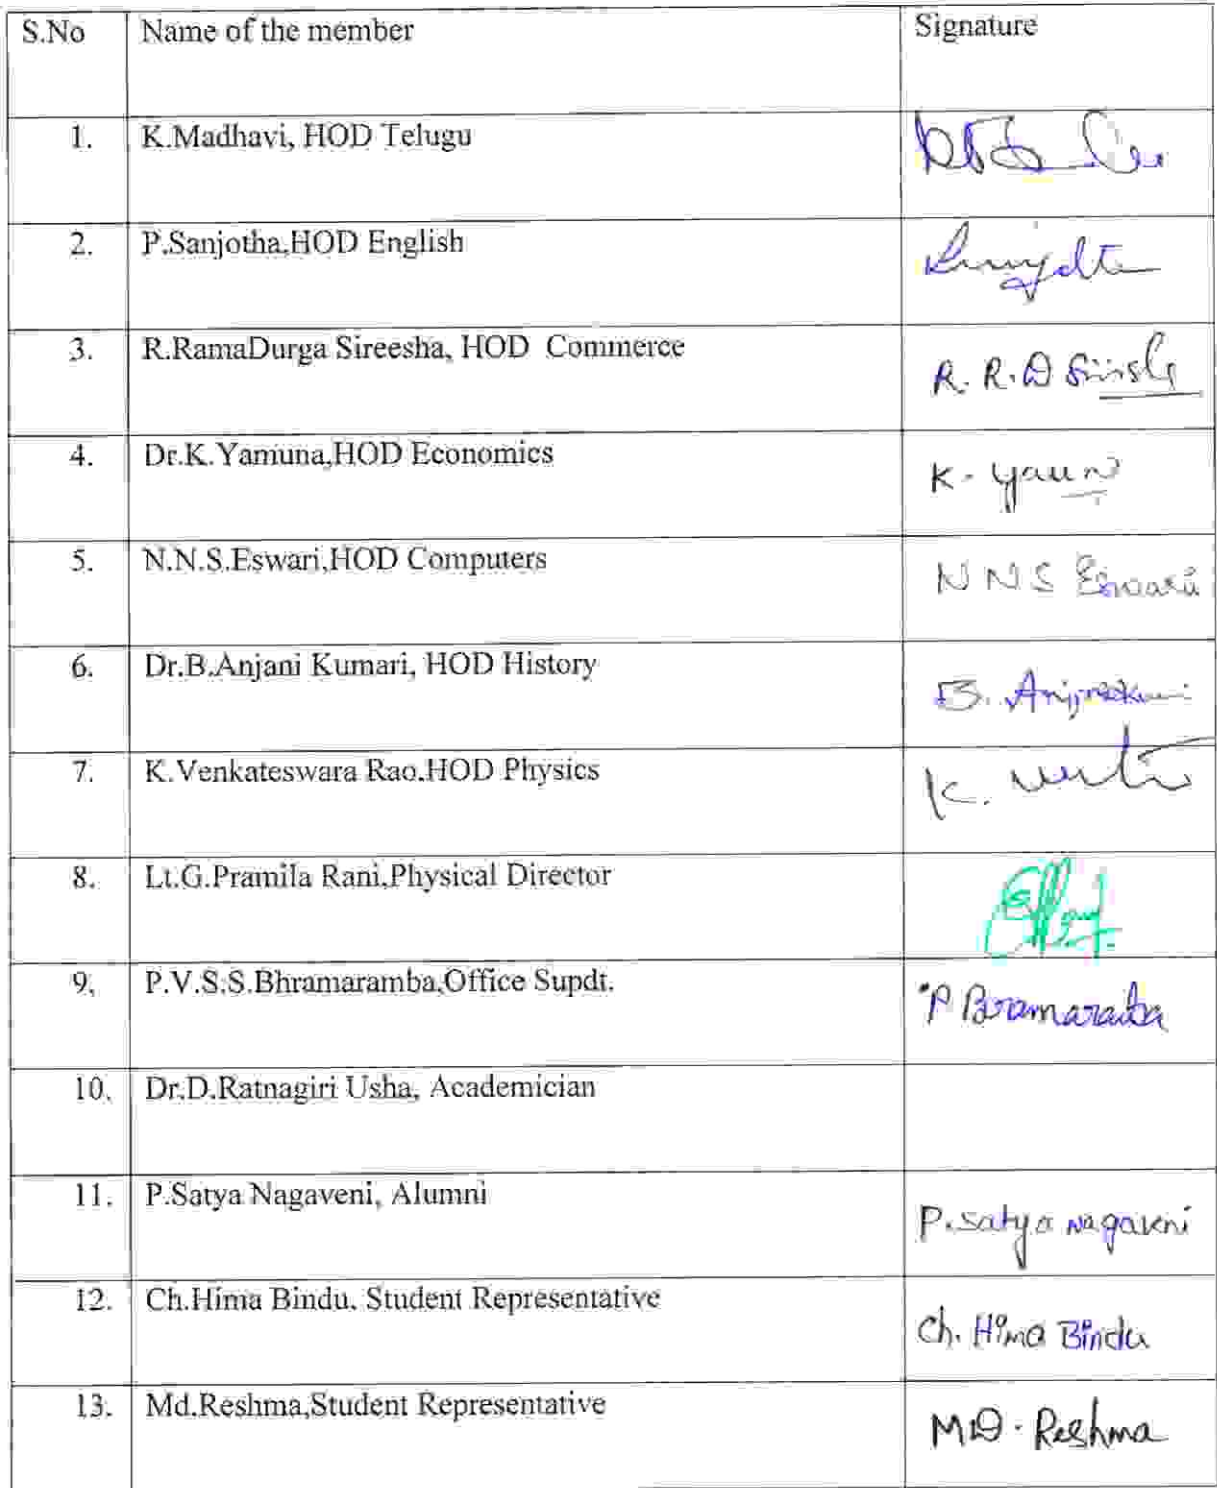 S.No Name of the member Signature
1. K.Madhavi, HOD Telugu
2. P.Sanjotha,HOD English
3. R.RamaDurga Sireesha, HOD Commerce R. R. D
4. Dr.K.Yamuna,HOD Economics K.
5. N.N.S.Eswari,HOD Computers N N S Eswari
6. Dr.B.Anjani Kumari, HOD History B.
7. K.Venkateswara Rao,HOD Physics K.
8. Lt.G.Pramila Rani,Physical Director
9. P.V.S.S.Bhramaramba,Office Supdt. P
10. Dr.D.Ratnagiri Usha, Academician
11. P.Satya Nagaveni, Alumni P.satya nagaveni
12. Ch.Hima Bindu, Student Representative Ch. Hima Bindu
13. Md.Reshma,Student Representative MD. Reshma